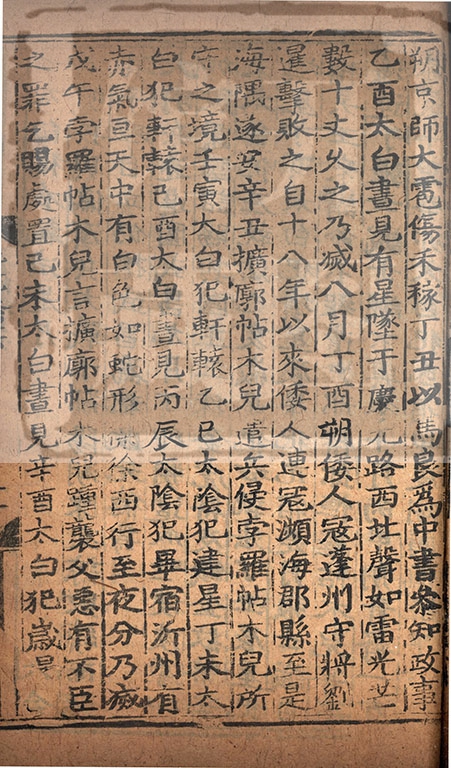 朔京師大雹傷禾稼丁丑以馬良爲中書叅知政事
乙酉太白晝見有星墜于慶元路西北聲如雷光芒
數十丈久之乃滅八月丁酉朔倭人寇蓬州守將劉
暹擊敗之自十八年以來倭人連寇瀕海郡縣至是
海隅遂安辛丑擴廓帖木兒遣兵侵孛羅帖木兒所
守之境壬寅大白犯軒轅乙巳太陰犯建星丁未太
白犯軒轅己酉大白晝見丙辰太陰犯畢宿沂州有
赤氣亘天中有白色如蛇形徐徐西行至夜分乃滅
戊午孛羅帖木兒言擴廓帖木兒踵襲父惡有不臣
之罪乞賜處置己未太白晝見辛酉太白犯歲星